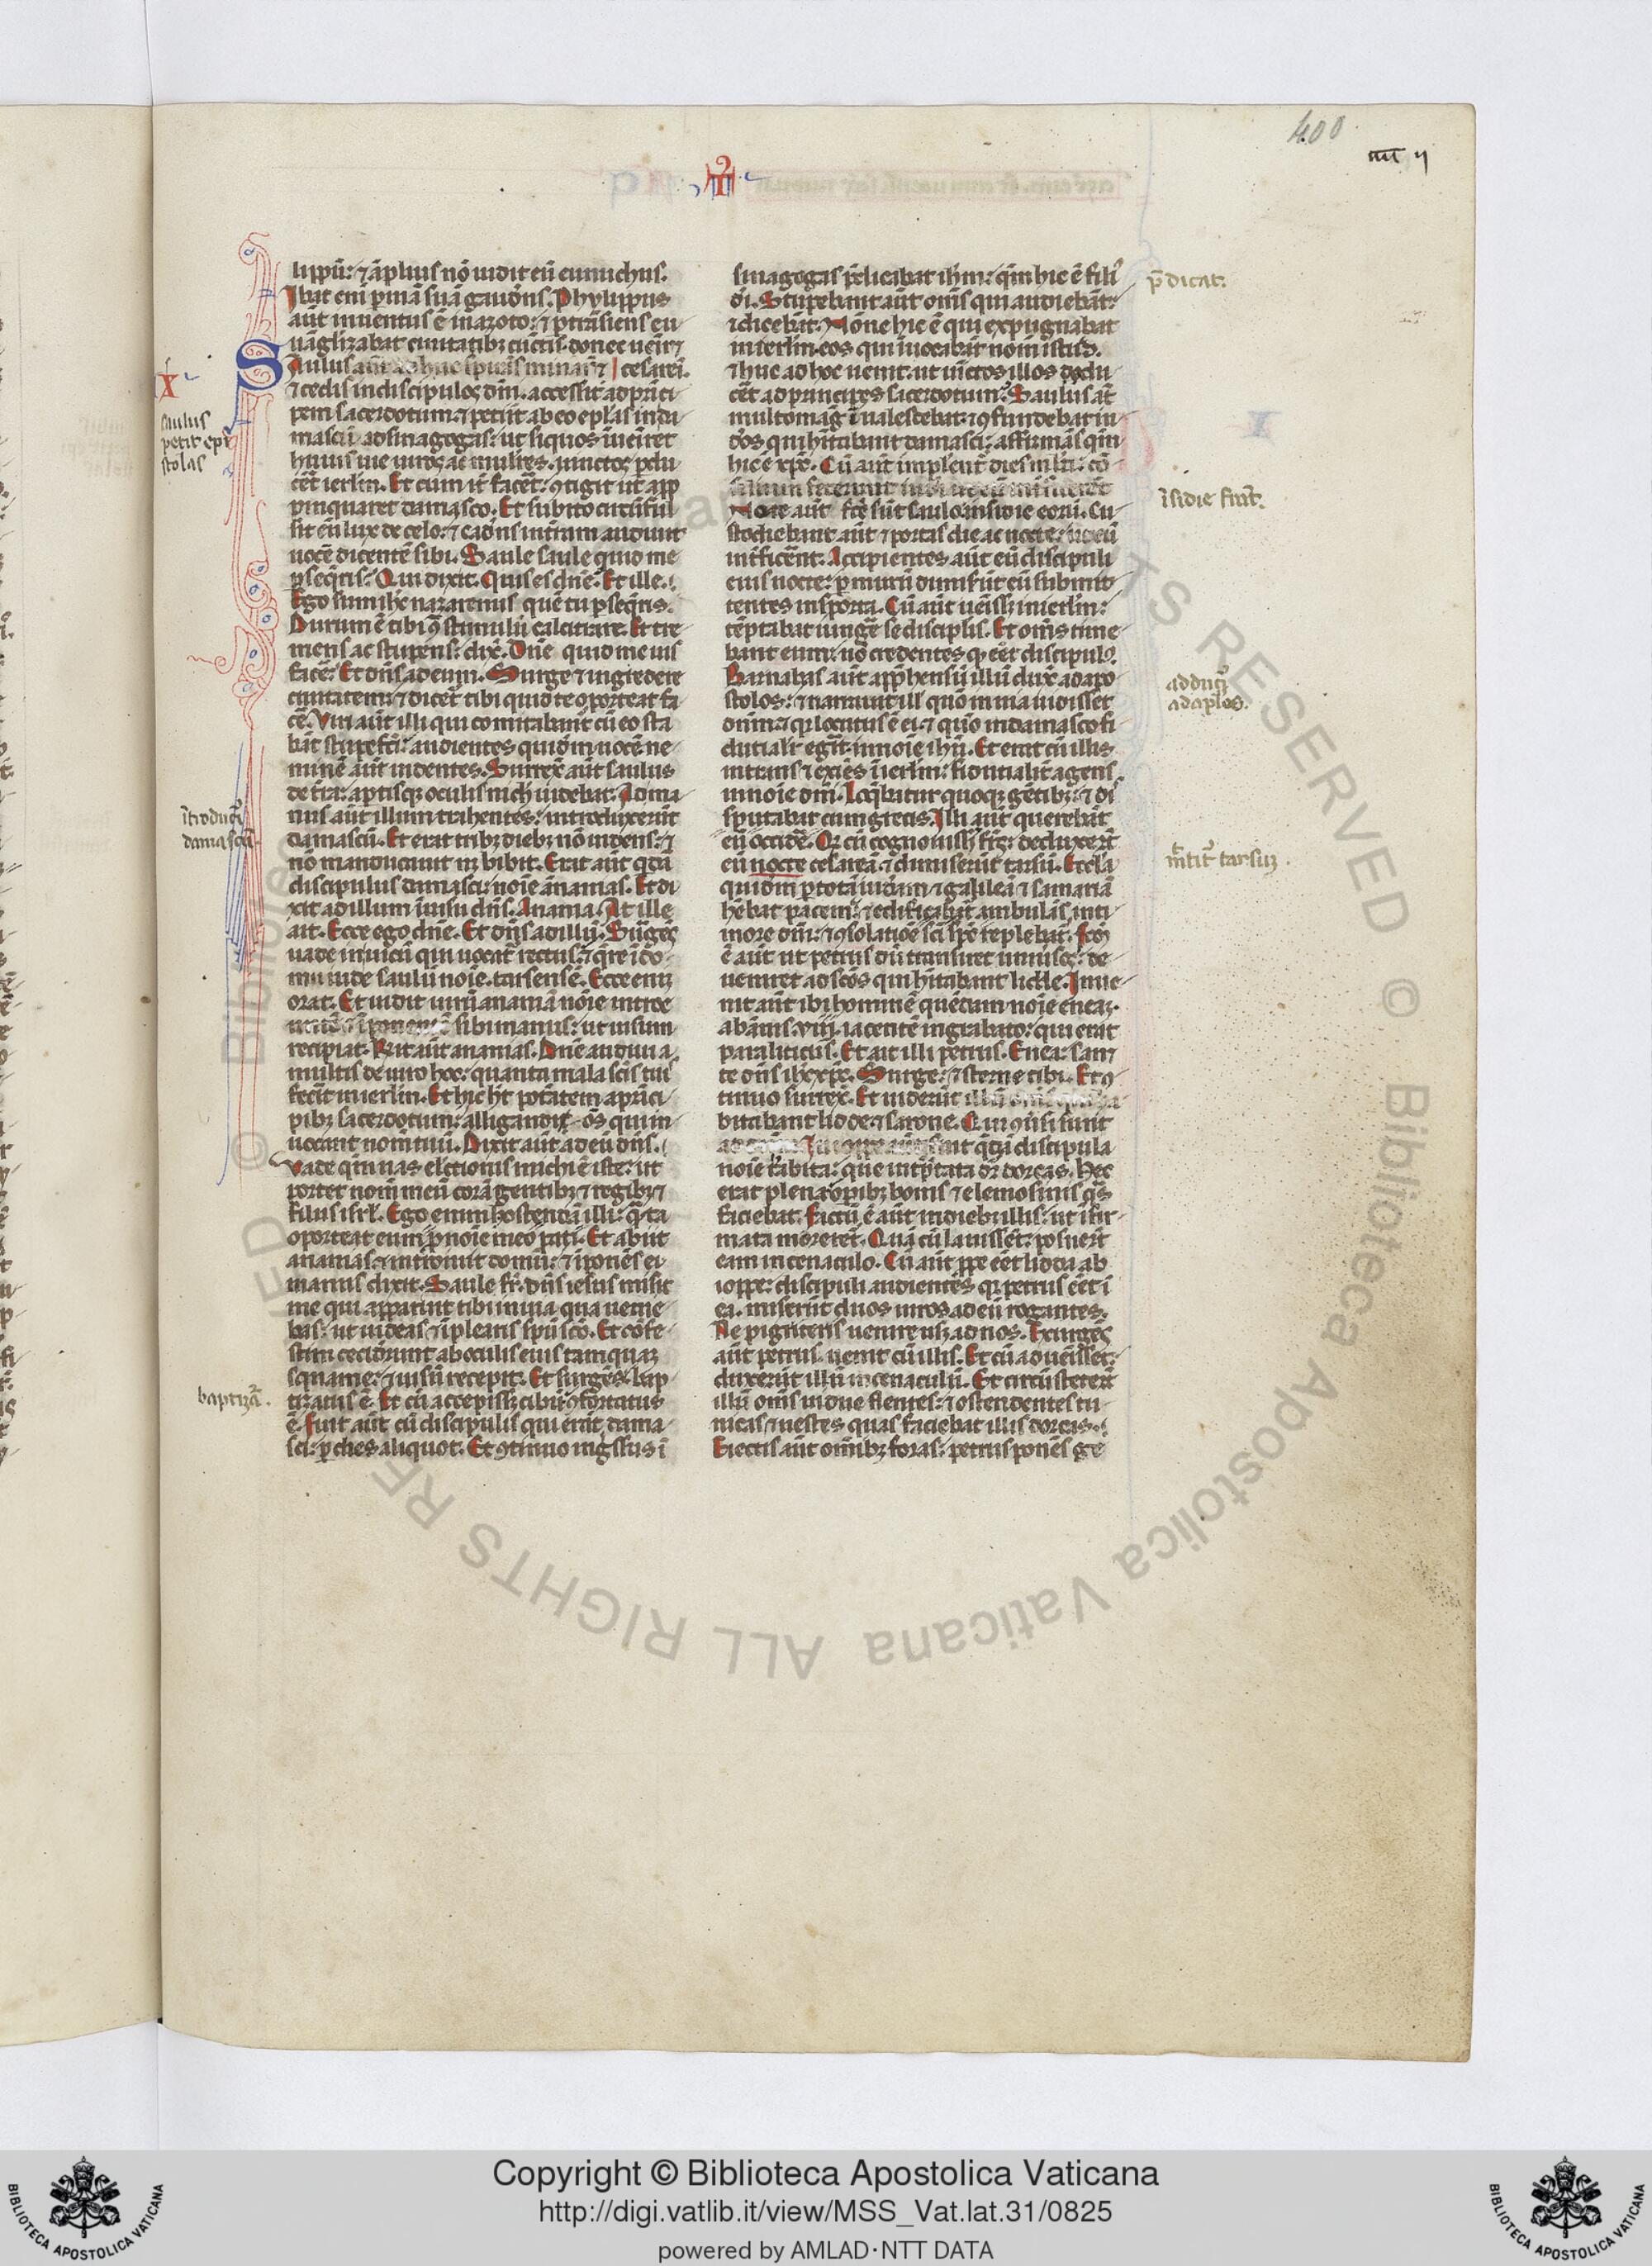 400
lippū: ⁊ āplius nō uidit eū eunuchus.
Ibat enī p uiā suā gaudēs. Phylippus
aūt inuentus ē in azoto: ⁊ ptrāsiens eu
uāglizabat ciuitatibꝫ cūctis. donec ueīr̄
Saulus aūt adhuc spirās minar̄ ⁊ cesareā.
⁊ cedis in discipulos dn̄i. accessit ad prīci
pem sacerdotum ⁊ petiit ab eo eplās in da
mascū ad sinagogas: ut si quos īueīret
huius uie uiros ac mulieres. uinctos pdu
cēt ierlm̄. Et cum iť facēt: ꝯtigit ut app
pinquaret damasco. Et subito circūful
sit eū lux de celo: ⁊ cadēs in terram audiuit
uocē dicentē sibi. Saule saule quid me
pseqr̄is: Qui dixit. Quis es dn̄e. Et ille.
Ego sum ihc̄ nazarenus quē tu pseqr̄is.
Durum ē tibi ꝯ stimulū calcitrare. Et tre
mens ac stupens: dix̄. Dn̄e quid me uis
facē: Et dn̄s ad eum. Surge ⁊ ingredere
ciuitatem: ⁊ dicet̄ tibi quid te oporteat fa
cē. Viri aūt illi qui comitabant̄ cū eo sta
bāt stupefcī: audientes quidm̄ uocē ne
minē aūt uidentes. Surrex̄ aūt saulus
de tr̄a: aptisqꝫ oculis nich̄ uidebat. Ad ma
nus aūt illum trahentes: introduxerūt
damascū. Et erat tribꝫ diebꝫ nō uidens: ⁊
nō manducauit nꝫ bibit. Erat aūt qdā
discipulus damasci: noīe ānanias. Et di
xit ad illum ī uisu dn̄s. Anania. At ille
ait. Ecce ego dn̄e. Et dn̄s ad illū. Surges
uade in uicū qui uocat̄ rectus: ⁊ qr̄e ī do
mu iude saulū noīe. tarsensē. Ecce enī
orat. Et uidit uirū ananiā noīe introe
sibi manus: ut uisum
recipiat. Rn̄t aūt ananias. Dn̄e audiui a
multis de uiro hoc: quanta mala scīs tuis
fecīt in ierlm̄. Et hic ht̄ potātem a prīci
pibꝫ sacerdotum: alligandi ōs qui in
uocant nom̄ tuū. Dixit aūt ad eū dn̄s.
Vade qm̄ uas elctionis michi ē iste: ut
portet nom̄ meū corā gentibꝫ ⁊ regibꝫ ⁊
filiis isrl̄. Ego enim hostendā illi: qāta
oporteat eum p noīe meo pati. Et abiit
ananias: ⁊ introiuit domū: ⁊ īponēs ei
manus dixit. Saule fr̄. dn̄s iesus misit
me qui apparuit tibi in uia qua uenie
bas: ut uideas ⁊ īplearis spū scō. Et cōfe
stim ceciderunt ab oculis eius tamquaꝫ
squame: ⁊ uisū recepit. Et surgēs bap
tizatus ē. Et cū accepissꝫ cibū: ꝯfortatus
ē. Fuit aūt cū discipulis qui erāt dama
sci: p dies aliquot. Et ꝯtinuo ingssus ī
sinagogas p̄dicabat ihm̄: qm̄ hic ē fili
di. Stupebant aūt om̄s qui audiebāt:
⁊ dicebāt. Nōne hic ē qui expugnabat
in ierlm̄ eos qui īuocabāt nom̄ istud.
⁊ huc ad hoc uenit: ut uīctos illos
cēt ad principes sacerdotum. Saulus aūt
multo maḡ īualescebat: ⁊ ꝯfundebat iu
dos qui hitabant damasci: affirmās qm̄
hic ē xp̄c. Cū aūt implent̄ dies mlti: cō
silium fecerunt
Note aūt fcē sūt saulo insidie eorū. Cu
stodiebant aūt ⁊ portas die ac nocte: ut eū
int̄ficēnt. Accipientes aūt eū discipuli
eius nocte: p murū dimiserūt eū submit
tentes in sporta. Cū aūt uēissꝫ in ierlm̄:
tēptabat iungē se disciplis. Et om̄s time
bant eum: nō credentes qꝫ eēt discipul.
Barnabas aūt appͣhensū illū dux̄ ad apo
stolos: ⁊ narrauit ill̄ quō in uia uidisset
dn̄m ⁊ qꝛ locutus ē ei: ⁊ quō in damasco fi
ducialr̄ egit̄ in noīe ihū. Et erat cū illis
intrans ⁊ exiēs ī ierlm̄: fiducialit̄ agens
in noīe dn̄i. Loqbatur quoqꝫ gētibꝫ: ⁊ di
sputabat cum grecis. Illi aūt querebāt
eū occidē. Qd̄ cū cognouissꝫ fr̄s: deduxert̄
eū nocte cesareā: ⁊ dimiserūt tarsū. Eccla
quidm̄ p totā iudeam ⁊ galileā ⁊ samariā
hēbat pacem: ⁊ edificabat̄ ambulās in ti
more dn̄i: ⁊ ꝯsolatioē scī sps̄ replebat̄. Fcm̄
ē aūt ut petrus dū transiret uniuſos: de
ueniret ad scōs qui hitabant lidde. Inue
nit aūt ibi hominē quēdam noīe eneaꝫ.
ab ānis. viij. iacentē in grabato: qui erat
paraliticus. Et ait illi petrus. Enea: sanꝫ
te dn̄s ihc̄ xp̄c. Surge: ⁊ sterne tibi. Et ꝯ
tinuo surrex̄. Et uiderūt illū om̄s
bitabant lidde: ⁊ sarone. Qui ꝯuīsi sunt
ad fuit qdā discipula
noīe tabita: que intp̄tata dr̄ dorcas. Hec
erat plena opibꝫ bonis ⁊ elemosinis qas
faciebat. Factū ē aūt in diebꝫ illis: ut īfir
mata moreret̄. Quā cū lauissēt: posuert̄
eam in cenaculo. Cū aūt ppe eēt lidda ab
ioppe: discipuli audientes qꝛ petrus eēt ī
ea. miserūt duos uiros ad eū rogantes.
Ne pigriteris uenire usqꝫ ad nos. Exurgēs
aūt petrus. uenit cū illis. Et cū aduēisset:
duxerūt illū in cenaculū. Et circūsteterūt
illū om̄s uidue flentes: ⁊ ostendentes tu
nicas ⁊ uestes quas faciebat illis dorcas.
Eiectis aūt om̄ibꝫ foras: petrus ponēs ge
X
saulus
petit epi
stolas
ītroducit̄
damascū.
baptizat̄.
p̄dicat.
īsidie fiūt.
adducit̄
ad aplos.
mītit̄ tarsuꝫ.
© Biblioteca Apostolica Vaticana ALL RIGHTS RESERVED
Copyright © Biblioteca Apostolica Vaticana
http://digi.vatlib.it/view/MSS_Vat.lat.31/0825
powered by AMLAD·NTT DATA
BIBLIOTECA APOSTOLICA VATICANA
BIBLIOTECA APOSTOLICA VATICANA